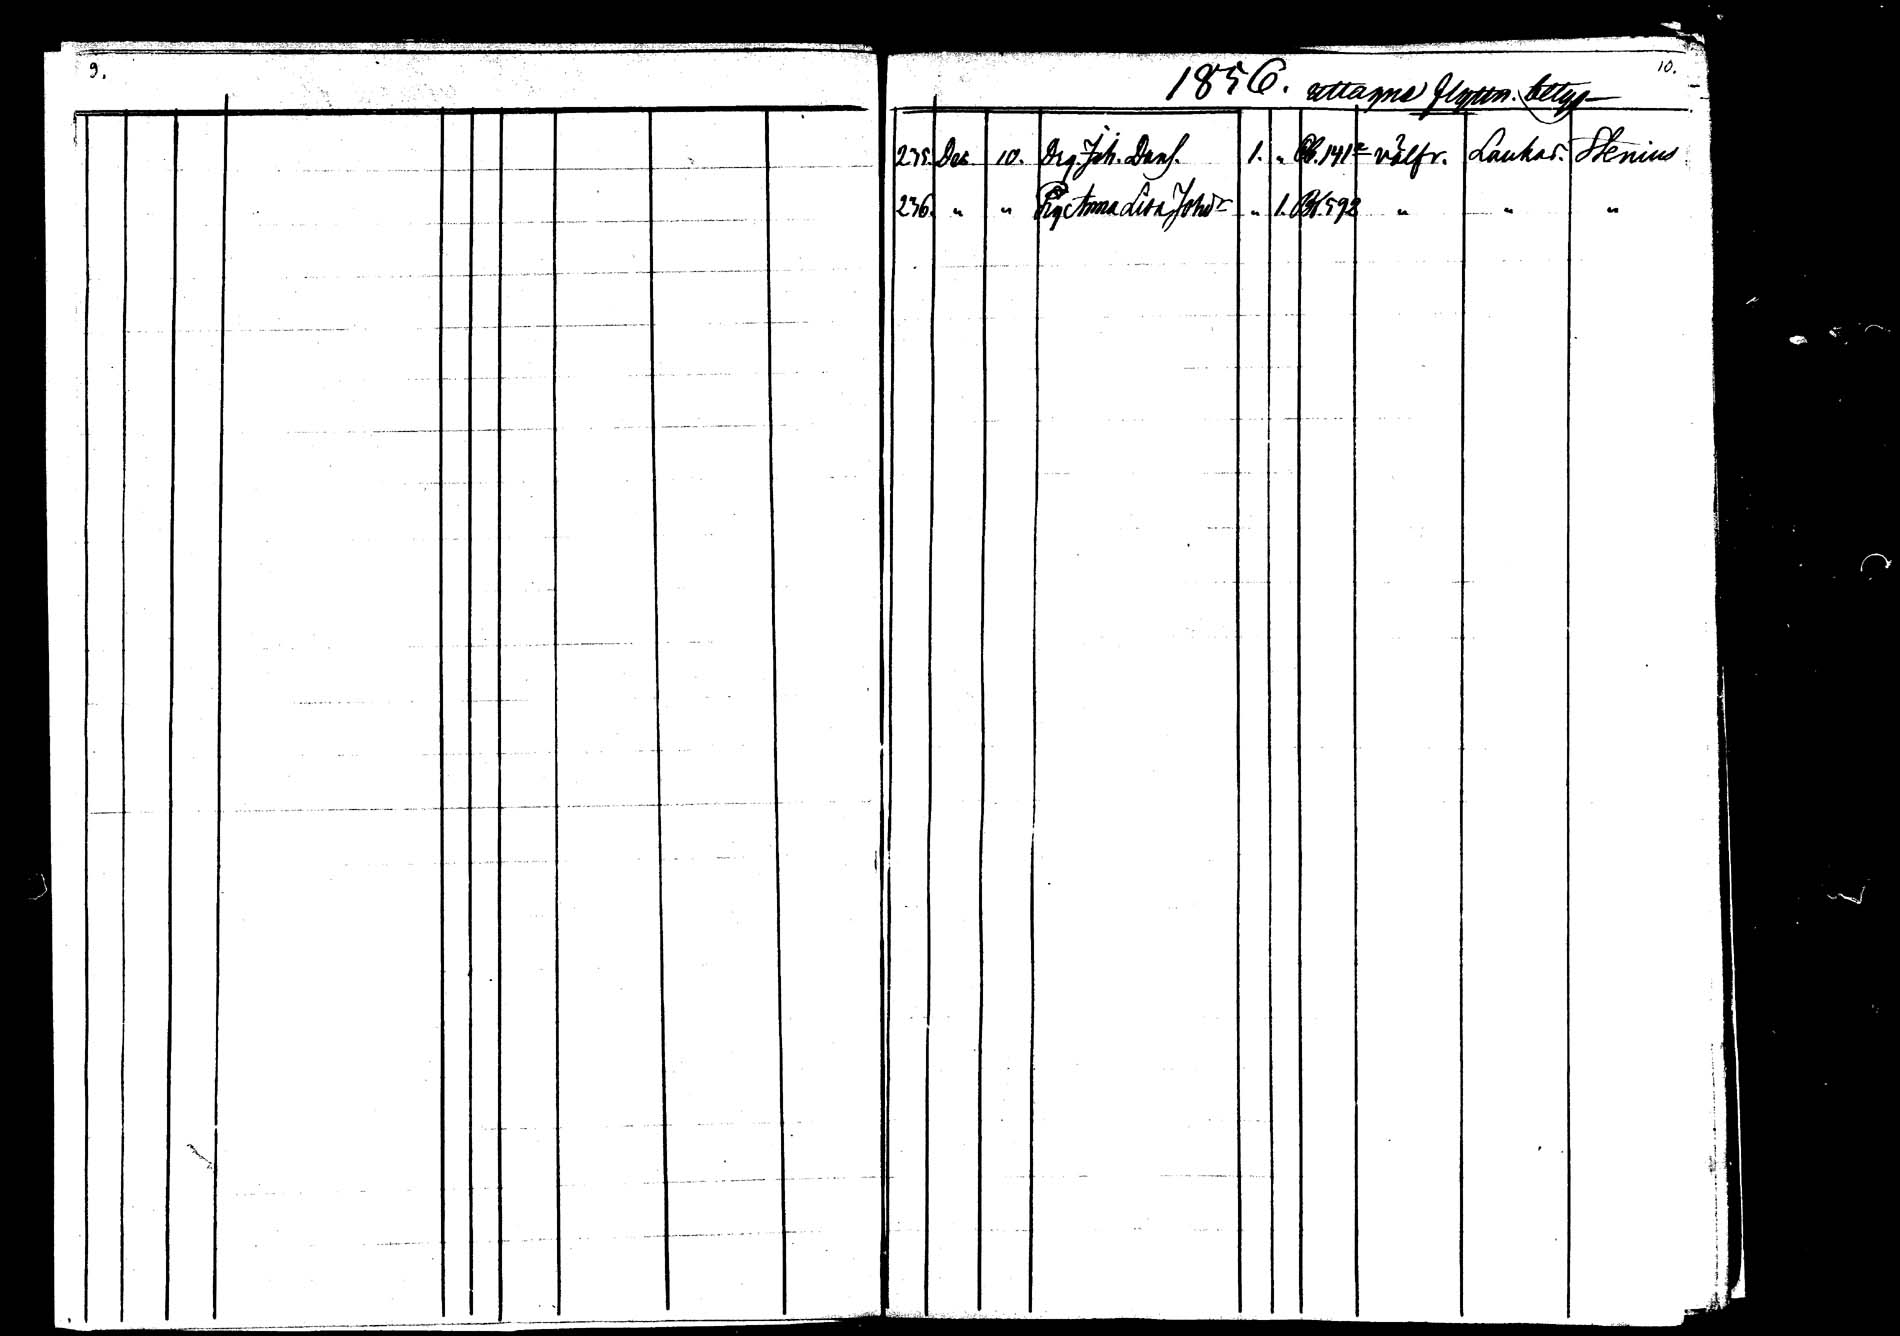 9.
10.
1856. uttagne flyttn. betyg
235. Dec. 10. Drg. Joh. Danl. 1. " Pb. 141 välfr. Laukas. Stenius
236. " " Pig. Anna Lisa Johdr " 1. Pb. 592 " " "